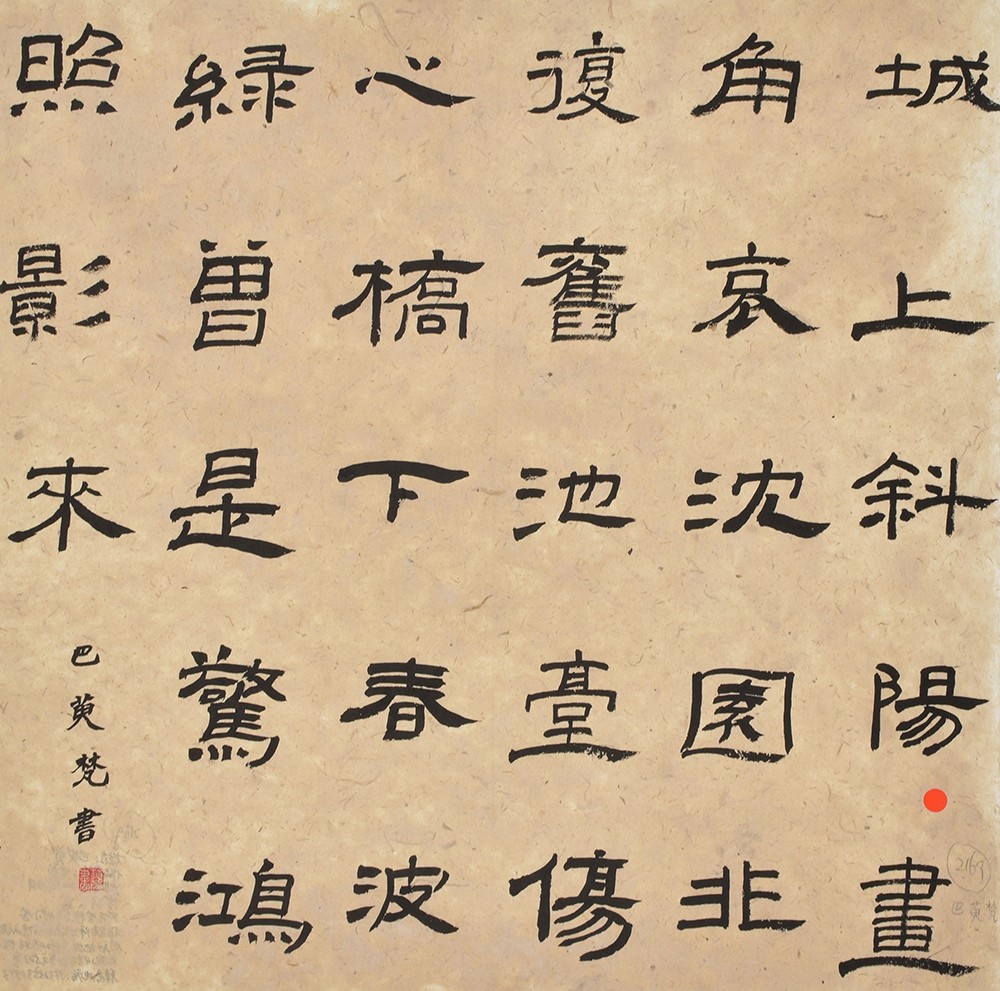 城上斜陽畫
角哀沈園非
復舊池臺傷
心橋下春波
緑曾是驚鴻
照影來
巴萸梵書
2163
巴萸梵